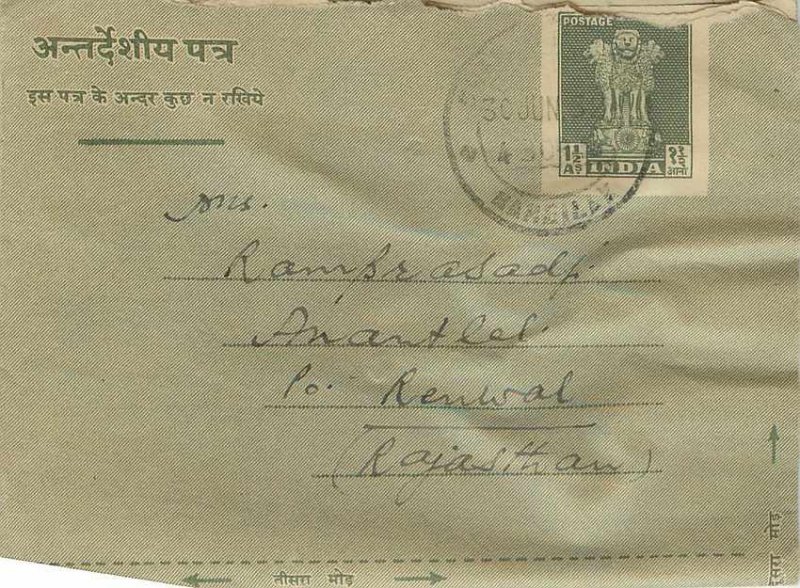 अन्तर्देशीय पत्र
इस पत्र के अन्दर कुछ न रखिये
POSTAGE
1½ AS INDIA १½ आना
30 JUN
BAREILLY
M/s.
Ramprasadji
Anantlal
Po. Renwal
(Rajasthan)
तीसरा मोड़
दूसरा मोड़